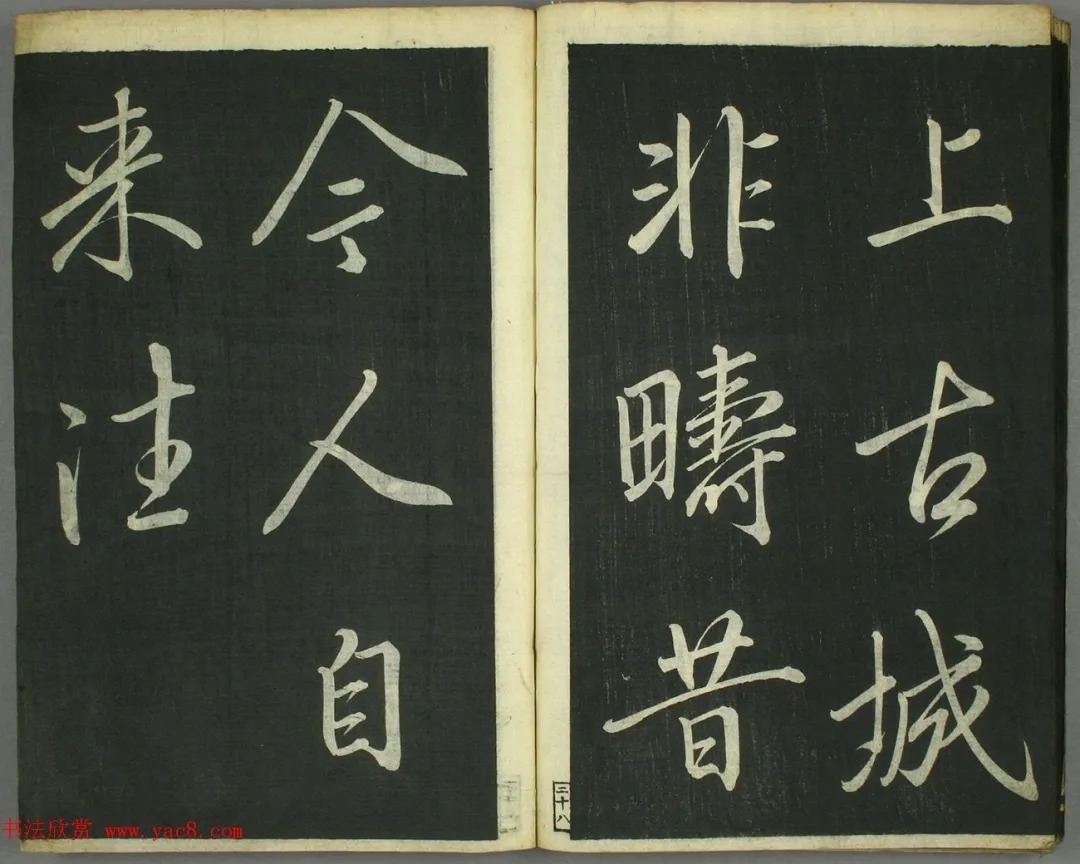 上古城
非疇昔
今人自
来往
二十八
书法欣赏 www.yac8.com